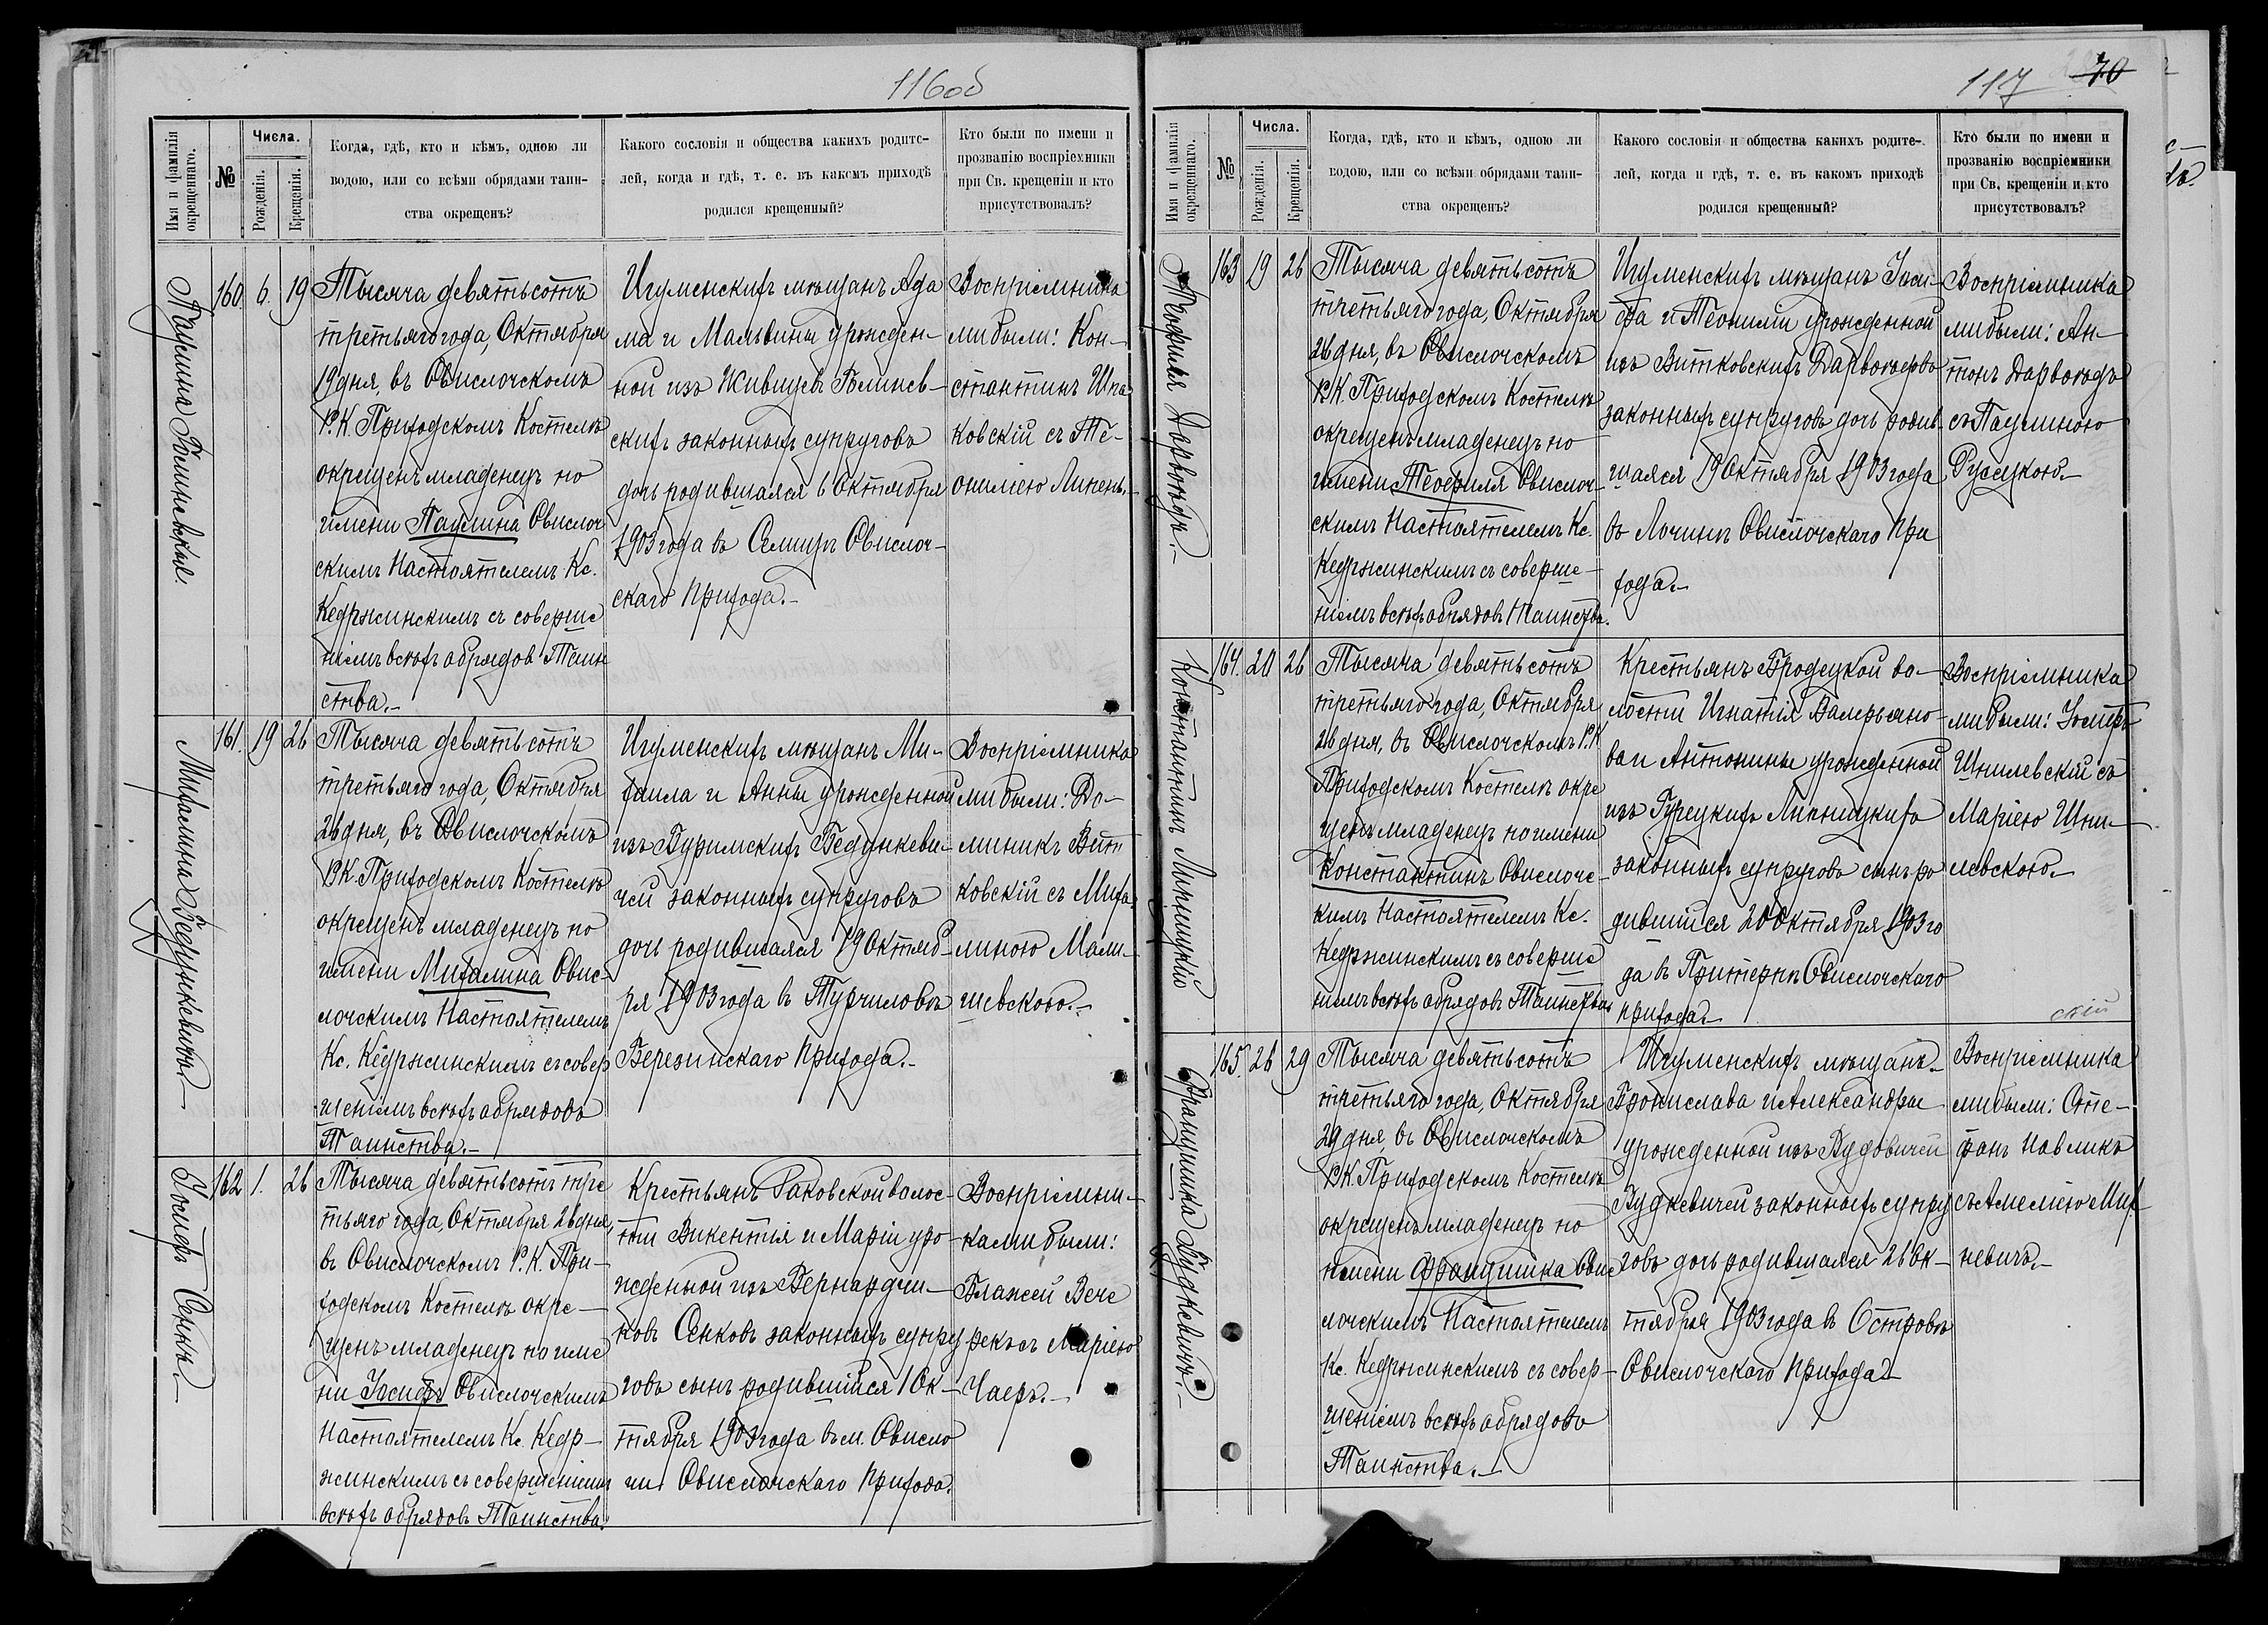 116об
Имя и фамилія окрещеннаго.
№
Числа.
Рожденія.
Крещенія.
Когда, гдѣ, кто и кѣмъ, одною ли
водою, или со всѣми обрядами таин-
ства окрещенъ?
Какого сословія и общества какихъ родите-
лей, когда и гдѣ, т. е. въ какомъ приходѣ
родился крещенный?
Кто были по имени и
прозванію воспріемники
при Св. крещеніи и кто
присутствовалъ?
Паулина
160. 6. 19
Тысяча девятьсотъ
третьяго года, Октября
19 дня, въ Свислочскомъ
Р. К. Приходскомъ Костелѣ
окрещенъ младенецъ по
имени Паулина Свислоч
скимъ Настоятелемъ Кс.
Кедржинскимъ съ соверше
ніемъ всѣхъ обрядов Таин
ства.-
Игуменскихъ мѣщанъ Ада
ма и Мальвины урожден-
ной изъ
скихъ законныхъ супруговъ
дочь родившаяся 6 Октября
1903 года въ Селищѣ Свислоч-
скаго прихода.-
Воспріемника
ми были: Кон-
стантинъ Шпа
ковскій съ Те-
офилiею
Михалина Бедункевичъ.-
161. 19 26
Тысяча девятьсотъ
третьяго года, Октября
26 дня, въ Свислочскомъ
Р.К. Приходскомъ Костелѣ
окрещенъ младенецъ по
имени Михалина Свис-
лочскимъ Настоятелемъ
Кс. Кедржинскимъ съ совер
шеніемъ всѣхъ обрядовъ
Таинства.-
Игуменскихъ мѣщанъ Ми-
хаила и Анны урожденной
изъ Буримскихъ Бедункеви-
чей законныхъ супруговъ
дочь родившаяся 19 Октяб-
ря 1903 года въ Турчиловѣ
Березинскаго прихода.-
Воспріемника
ми были: До-
миникъ Вит
ковскій съ Миха
линою Мали-
шевскою.-
Іосифъ Сенкъ.-
162 1. 26
Тысяча девятьсотъ тре
тьяго года, Октября 26 дня,
въ Свислочскомъ Р. К. При-
ходскомъ Костелѣ окре-
щенъ младенецъ по име
ни Іосифъ Свислочскимъ
Настоятелемъ Кс. Кедр-
жинскимъ съ совершеніемъ
всѣхъ обрядовъ Таинства.
Крестьянъ Раковской волос-
ти Викентія и Маріи уро-
жденной изъ Бернардчи-
ковъ Сенковъ законныхъ супру
говъ сынъ родившійся 1 Ок-
тября 1903 года въ м. Свисло
чи Свислочскаго прихода.
Воспріемни-
ками были:
Блажей Вече
рекъ съ Маріею
Чаеръ.-
117 70
Имя и фамилія окрещеннаго.
№
Числа.
Рожденія.
Крещенія.
Когда, гдѣ, кто и кѣмъ, одною ли
водою, или со всѣми обрядами таин-
ства окрещенъ?
Какого сословія и общества какихъ родите-
лей, когда и гдѣ, т. е. въ какомъ приходѣ
родился крещенный?
Кто были по имени и
прозванію воспріемники
при Св. крещеніи и кто
присутствовалъ?
Теофиля Дарвойдъ.-
163 19 26
Тысяча девятьсотъ
третьяго года, Октября
26 дня, въ Свислочскомъ
Р.К. Приходскомъ Костелѣ
окрещенъ младенецъ по
имени Теофиля Свислоч-
скимъ Настоятелемъ Кс.
Кедржинскимъ съ соверше-
ніемъ всѣхъ обрядовъ Таинства.
Игуменскихъ мѣщанъ Іоси-
фа и урожденной
изъ Витковскихъ Дарвойдовъ
законныхъ супруговъ дочь родив-
шаяся 19 Октября 1903 года
въ Лочинѣ Свислочскаго при
хода.-
Воспріемника
ми были: Ан-
тонъ Дарвойдъ
съ Паулиною
Русецкою.-
Константинъ Липницкій
164. 20 26
Тысяча девятьсотъ
третьяго года, Октября
26 дня, въ Свислочскомъ Р.К
Приходскомъ Костелѣ окре
щенъ младенецъ по имени
Константинъ Свислочс-
кимъ Настоятелемъ Кс.
Кедржинскимъ съ соверше
ніемъ всѣхъ обрядовъ Таинства
Крестьянъ Бродецкой во-
лости Игнатія Валерьяно-
ва и Антонины урожденной
изъ Гурецкихъ Липницкихъ
законныхъ супруговъ сынъ ро
дившійся 20 Октября 1903 го
да въ Притерпѣ Свислочскаго
прихода.-
Воспріемника
ми были: Іосифъ
Шпилевскій съ
Маріею Шпи-
левскою.-
скій
Францишка Будкевичъ.-
165. 26 29
Тысяча девятьсотъ
третьяго года, Октября
29 дня, въ Свислочскомъ
Р.К. Приходскомъ Костелѣ
окрещенъ младенецъ по
имени Францишка Свис
лочскимъ Настоятелемъ
Кс. Кедржинскимъ съ совер-
шеніемъ всѣхъ обрядовъ
Таинства.-
Игуменскихъ мѣщанъ
Бронислава и Александры
урожденной изъ
Будкевичей законныхъ супру
говъ дочь родившаяся 26 Ок-
тября 1903 года въ Островѣ
Свислочскаго прихода.-
Воспріемника
ми были: Сте-
фанъ Павликъ
съ Амеліею Мих-
невичъ.-